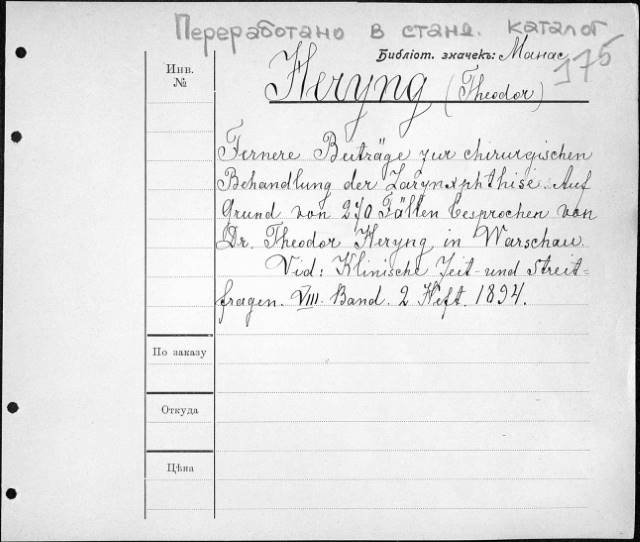 Переработано в станд. каталог
Библіот. значекъ: Манас
175
Инв.
№
Heryng (Theodor)
Fernere Beiträge zur chirurgischen
Behandlung der Larynxphthise. Auf
Grund von 270 Fällen besprochen von
Dr. Theodor Heryng in Warschau.
Vid: Klinische Zeit- und Streit-
fragen. VIII. Band. 2 Heft. 1894.
По заказу
Откуда
Цѣна